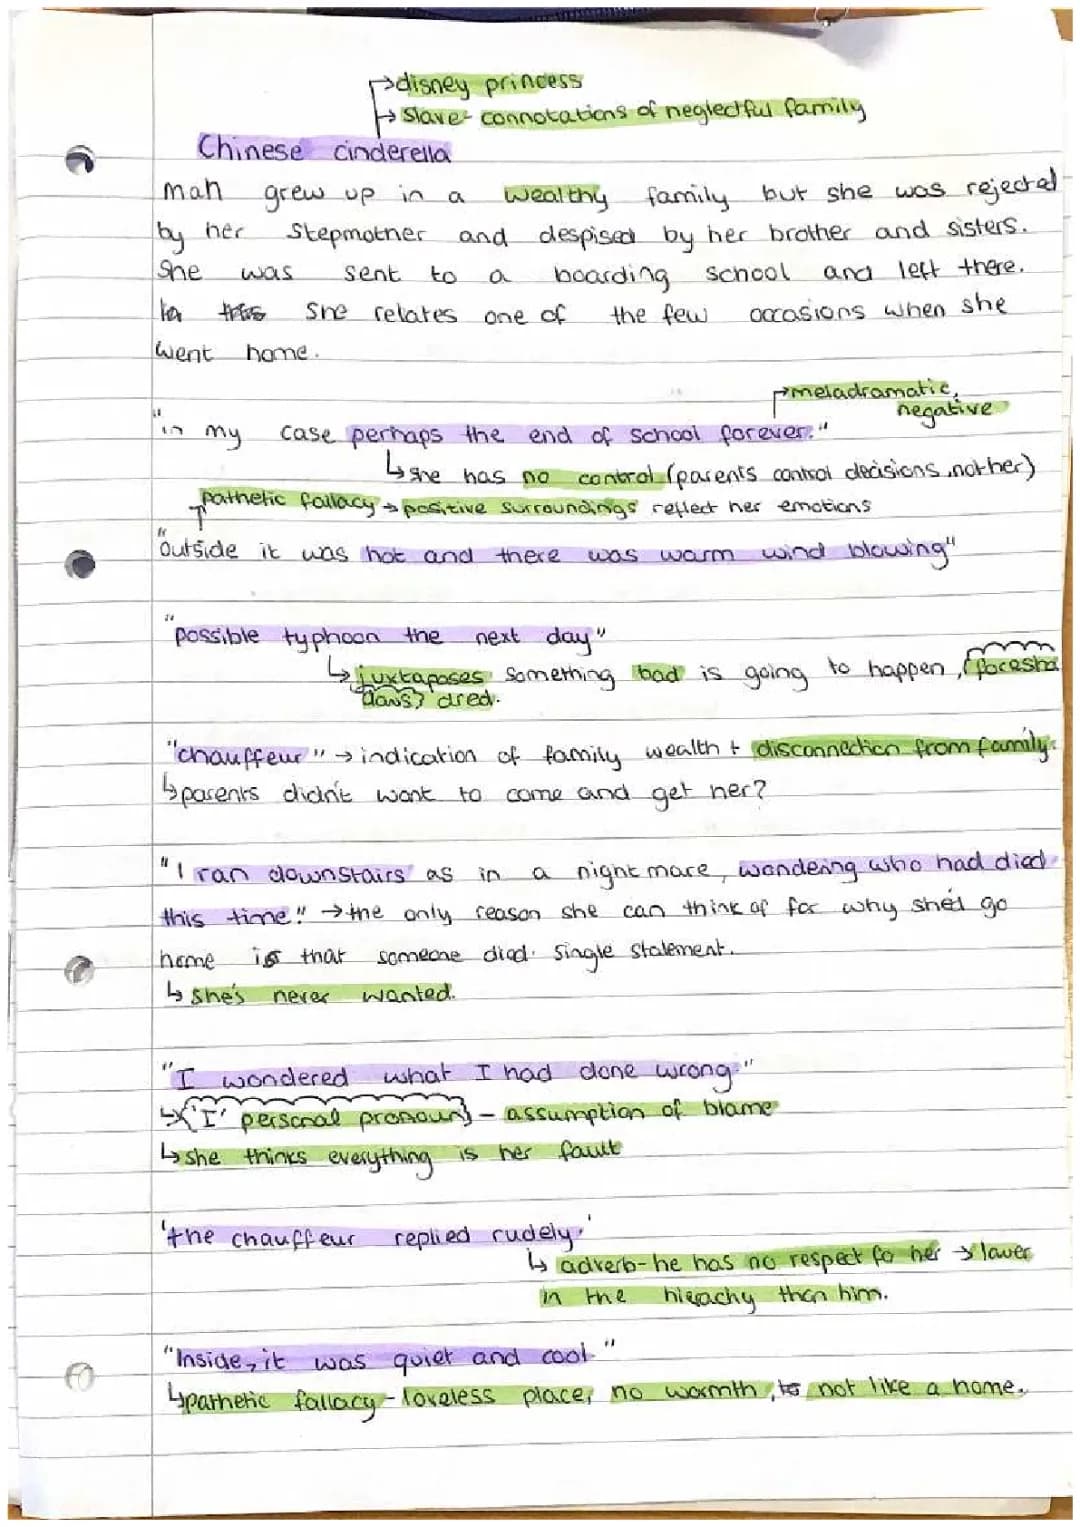 →disney princess
→ Slave - connotations of neglectful family
Chinese cinderella
Mah grew up in a wealthy family but she was rejected
by her stepmother and despised by her brother and sisters.
She was sent to a boarding school and left there.
She relates one of the few occasions when she
went home.
→meladramatic,
negative
"in my case perhaps the end of school forever."
↳she has no control (parents control decisions, not her)
pathetic fallacy → positive surroundings reflect her emotions
"outside it was hot and there was warm wind blowing"
"possible typhoon the next day"
↳ juxtaposes something bad is going to happen, (foresha
dows) dred.
"chauffeur" → indication of family wealth + disconnection from family.
↳parents didn't want to come and get her?
"I ran downstairs as in a nightmare, wondeing who had died
this time." →the only reason she can think of for why she'd go
home is that someone died. Single statement.
↳ she's never wanted.
"I wondered what I had done wrong."
↳('I' personal pronoun) - assumption of blame
↳she thinks everything is her fault
'the chauffeur replied rudely.'
↳ adverb - he has no respect fo her → lower
in the hierachy than him.
"Inside, it was quiet and cool."
↳pathetic fallacy - loveless place, no warmth, not like a home.